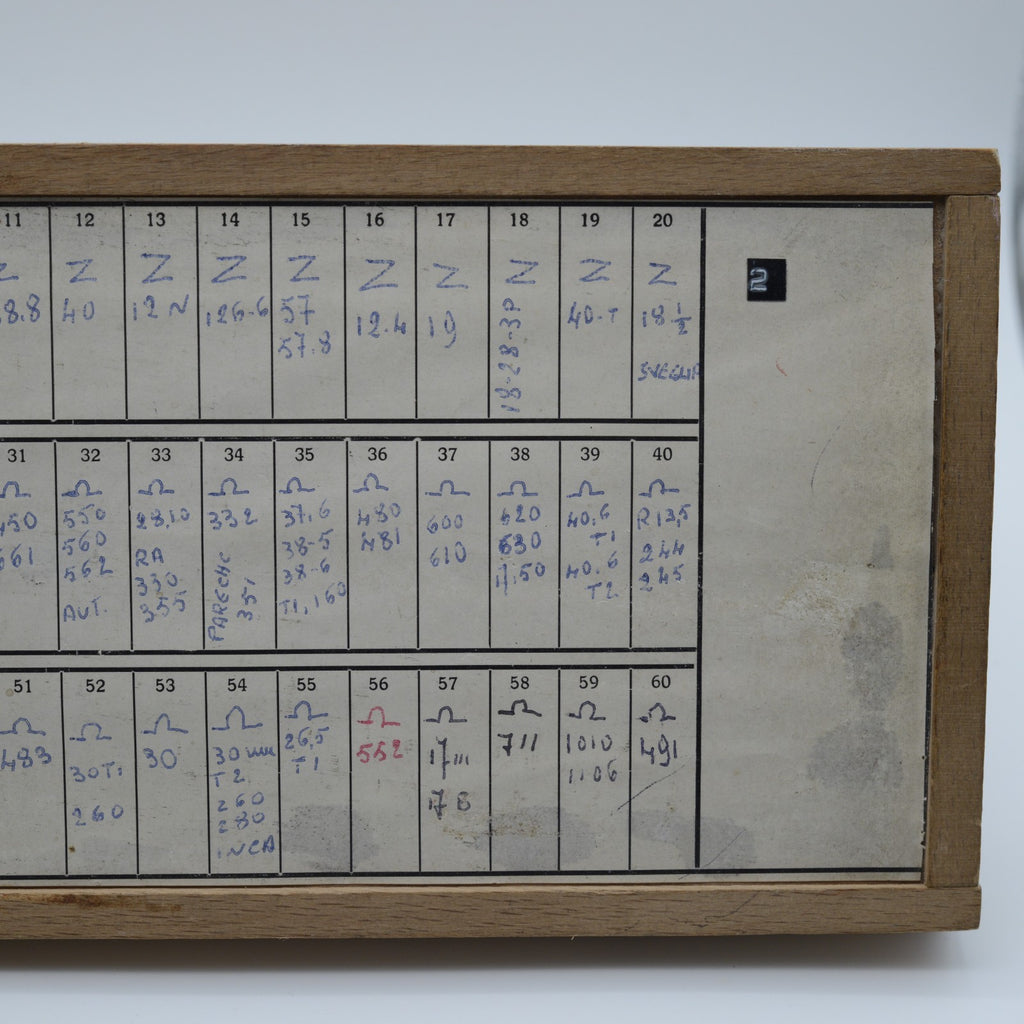 11 12 13 14 15 16 17 18 19 20
Z Z Z Z Z Z Z Z Z Z
8.8 40 12 N 126-6 57 12.4 19 18-28-3P 40-T 18 1/2
57.8
SVEGLIA
2
31 32 33 34 35 36 37 38 39 40
Ω Ω Ω Ω Ω Ω Ω Ω Ω Ω
450 550 28,10 332 37.6 480 600 620 40.6 R 13,5
661 560 RA PARECHC 38-5 481 610 630 T1 244
562 330 351 38-6 17.50 40.6 245
AUT. 355 T1.160 T2
51 52 53 54 55 56 57 58 59 60
Ω Ω Ω Ω Ω Ω Ω Ω Ω Ω
483 30T1 30 30 mm 26,5 552 17 711 1010 491
260 T2 T1 17 8 1106
260
280
INCA